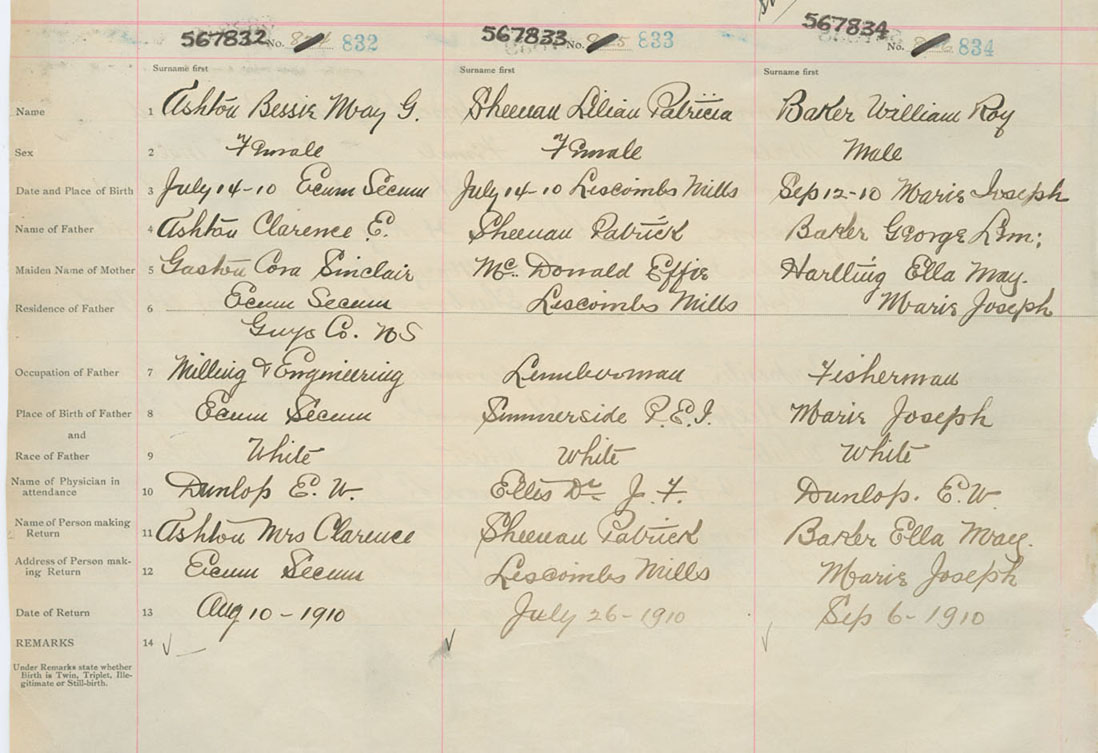 567832 No. 832 567833 No. 833 567834 No. 834
Surname first Surname first Surname first
Name 1 Ashton Bessie May G. Sheenan Lilian Patricia Baker William Roy
Sex 2 Female Female Male
Date and Place of Birth 3 July 14-10 Ecum Secum July 14-10 Liscombs Mills Sep 12-10 Marie Joseph
Name of Father 4 Ashton Clarence E. Sheenan Patrick Baker George
Maiden Name of Mother 5 Gaston Cora Sinclair Mc Donald Effie Hartling Ella May.
Residence of Father 6 Ecum Secum Liscombs Mills Marie Joseph
Guys Co. NS
Occupation of Father 7 Milling & Engineering Lumberman Fisherman
Place of Birth of Father 8 Ecum Secum Summerside P.E.I. Marie Joseph
and
Race of Father 9 White White White
Name of Physician in
attendance 10 Dunlop E. W. Ellis Dr J. F. Dunlop. E.W
Name of Person making
Return 11 Ashton Mrs Clarence Sheenan Patrick Baker Ella May.
Address of Person mak-
ing Return 12 Ecum Secum Liscombs Mills Marie Joseph
Date of Return 13 Aug 10-1910 July 26-1910 Sep 6-1910
REMARKS 14
Under Remarks state whether
Birth is Twin, Triplet, Ille-
gitimate or Still-birth.